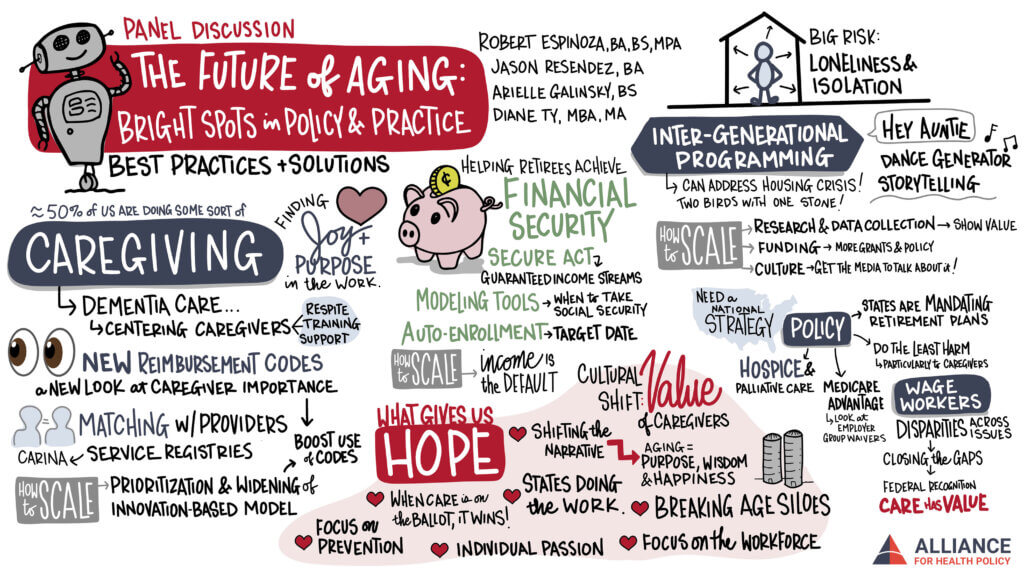 PANEL DISCUSSION
THE FUTURE of AGING:
BRIGHT SPOTS in POLICY & PRACTICE
BEST PRACTICES + SOLUTIONS
ROBERT ESPINOZA, BA, BS, MPA
JASON RESENDEZ, BA
ARIELLE GALINSKY, BS
DIANE TY, MBA, MA
BIG RISK:
LONELINESS &
ISOLATION
INTER-GENERATIONAL
PROGRAMMING
HEY AUNTIE
DANCE GENERATOR
STORYTELLING
CAN ADDRESS HOUSING CRISIS!
TWO BIRDS WITH ONE STONE!
HOW to SCALE
RESEARCH & DATA COLLECTION → SHOW VALUE
FUNDING → MORE GRANTS & POLICY
CULTURE → GET THE MEDIA TO TALK ABOUT it!
≈ 50% of US ARE DOING SOME SORT of
CAREGIVING
DEMENTIA CARE...
CENTERING CAREGIVERS
RESPITE
TRAINING
SUPPORT
FINDING
Joy +
PURPOSE
in the WORK.
NEW REIMBURSEMENT CODES
a NEW LOOK at CAREGIVER IMPORTANCE
MATCHING W/PROVIDERS
CARINA ← SERVICE REGISTRIES
BOOST USE
of CODES
HOW to SCALE
PRIORITIZATION & WIDENING of
INNOVATION-BASED MODEL
¢
HELPING RETIREES ACHIEVE
FINANCIAL
SECURITY
SECURE ACT 2
GUARANTEED INCOME STREAMS
MODELING TOOLS → WHEN to TAKE
SOCIAL SECURITY
AUTO-ENROLLMENT → TARGET DATE
HOW to SCALE
income IS
the DEFAULT
CULTURAL
SHIFT: Value
of CAREGIVERS
WHAT GIVES US
HOPE
SHIFTING the
NARRATIVE
AGING =
PURPOSE, WISDOM
& HAPPINESS
WHEN CARE is on
the BALLOT, IT WINS!
STATES DOING
the WORK.
BREAKING AGE SILOES
FOCUS on
PREVENTION
INDIVIDUAL PASSION
FOCUS on the WORKFORCE
NEED a
NATIONAL
STRATEGY
POLICY
STATES ARE MANDATING
RETIREMENT PLANS
DO THE LEAST HARM
PARTICULARLY to CAREGIVERS
HOSPICE &
PALLIATIVE CARE
MEDICARE
ADVANTAGE
LOOK at
EMPLOYER
GROUP WAIVERS
WAGE
WORKERS
DISPARITIES ACROSS
ISSUES
CLOSING the GAPS
FEDERAL RECOGNITION
CARE HAS VALUE
ALLIANCE
FOR HEALTH POLICY